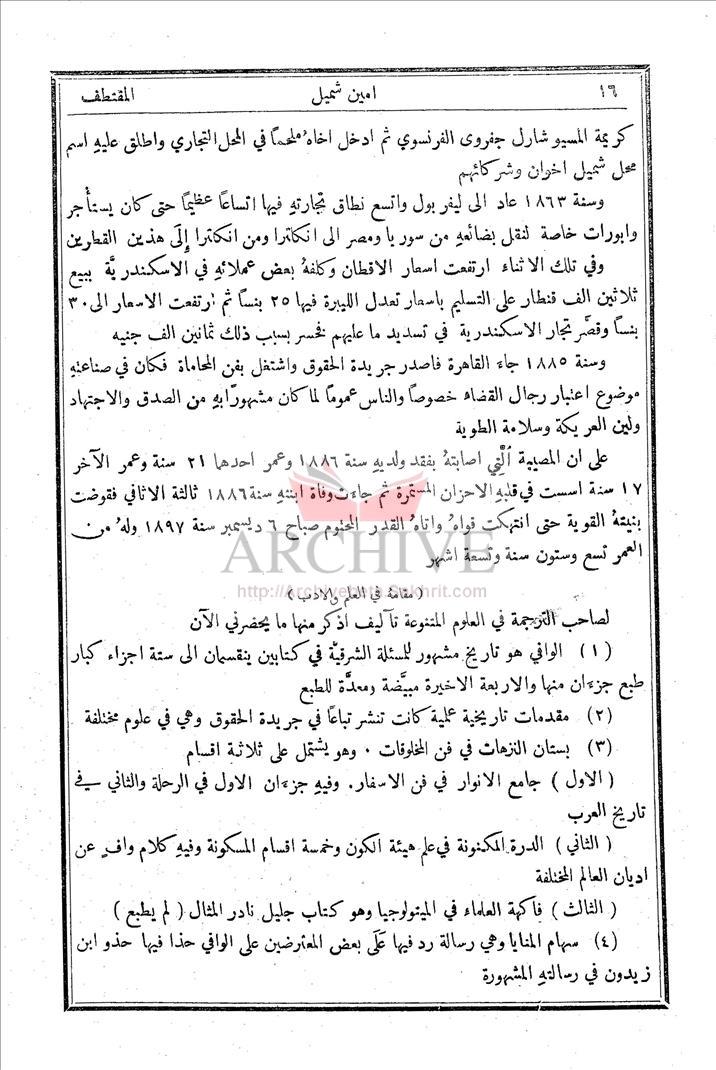 ١٦ امين شميل المقتطف
كريمة المسيو شارل جفروى الفرنسوي ثم ادخل اخاهُ ملحماً في المحل التجاري واطلق عليهِ اسم
محل شميل اخوان وشركائهم
وسنة ١٨٦٣ عاد الى ليفربول واتسع نطاق تجارتهِ فيها اتساعاً عظيماً حتى كان يستأجر
وابورات خاصة لنقل بضائعهِ من سوريا ومصر الى انكلترا ومن انكلترا إِلَى هذين القطرين
وفي تلك الاثناء ارتفعت اسعار الاقطان وكلفهُ بعض عملائهِ في الاسكندريَّة ببيع
ثلاثين الف قنطار على التسليم باسعار تعدل الليبرة فيها ٢٥ بنساً ثم ارتفعت الاسعار الى ٣٠
بنساً وقصَّر تجار الاسكندرية في تسديد ما عليهم فخسر بسبب ذلك ثمانين الف جنيه
وسنة ١٨٨٥ جاءَ القاهرة فاصدر جريدة الحقوق واشتغل بفن المحاماة فكان في صناعتهِ
موضوع اعتبار رجال القضاء خصوصاً والناس عموماً لما كان مشهوراً بهِ من الصدق والاجتهاد
ولين العريكة وسلامة الطوية
على ان المصيبة الَّتي اصابتهُ بفقد ولديهِ سنة ١٨٨٦ وعمر احدهما ٢١ سنة وعمر الآخر
١٧ سنة اسست في قلبهِ الاحزان المستمرة ثم جاءت وفاة ابنتهِ سنة ١٨٨٦ ثالثة الاثافي فقوضت
بنيتهُ القوية حتى انتهكت قواهُ واتاهُ القدر المحتوم صباح ٦ ديسمبر سنة ١٨٩٧ ولهُ من
العمر تسع وستون سنة وتسعة اشهر
ARCHIVE
http://Archivebeta.Sakhrit.com
(مقامهُ في العلم والادب)
لصاحب الترجمة في العلوم المتنوعة تآليف اذكر منها ما يحضرني الآن
(١) الوافي هو تاريخ مشهور للمسئلة الشرقيَّة في كتابين ينقسمان الى ستة اجزاء كبار
طبع جزءان منها والاربعة الاخيرة مبيَّضة ومعدَّة للطبع
(٢) مقدمات تاريخية علمية كانت تنشر تباعاً في جريدة الحقوق وهي في علوم مختلفة
(٣) بستان النزهات في فن المخلوقات . وهو يشتمل على ثلاثة اقسام
(الاول) جامع الانوار في فن الاسفار. وفيهِ جزءان الاول في الرحلة والثاني في
تاريخ العرب
(الثاني) الدرة المكنونة في علم هيئة الكون وخمسة اقسام المسكونة وفيهِ كلام وافٍ عن
اديان العالم المختلفة
(الثالث) فاكهة العلماء في الميتولوجيا وهو كتاب جليل نادر المثال (لم يطبع)
(٤) سهام المنايا وهي رسالة رد فيها عَلَى بعض المعترضين على الوافي حذا فيها حذو ابن
زيدون في رسالتهِ المشهورة